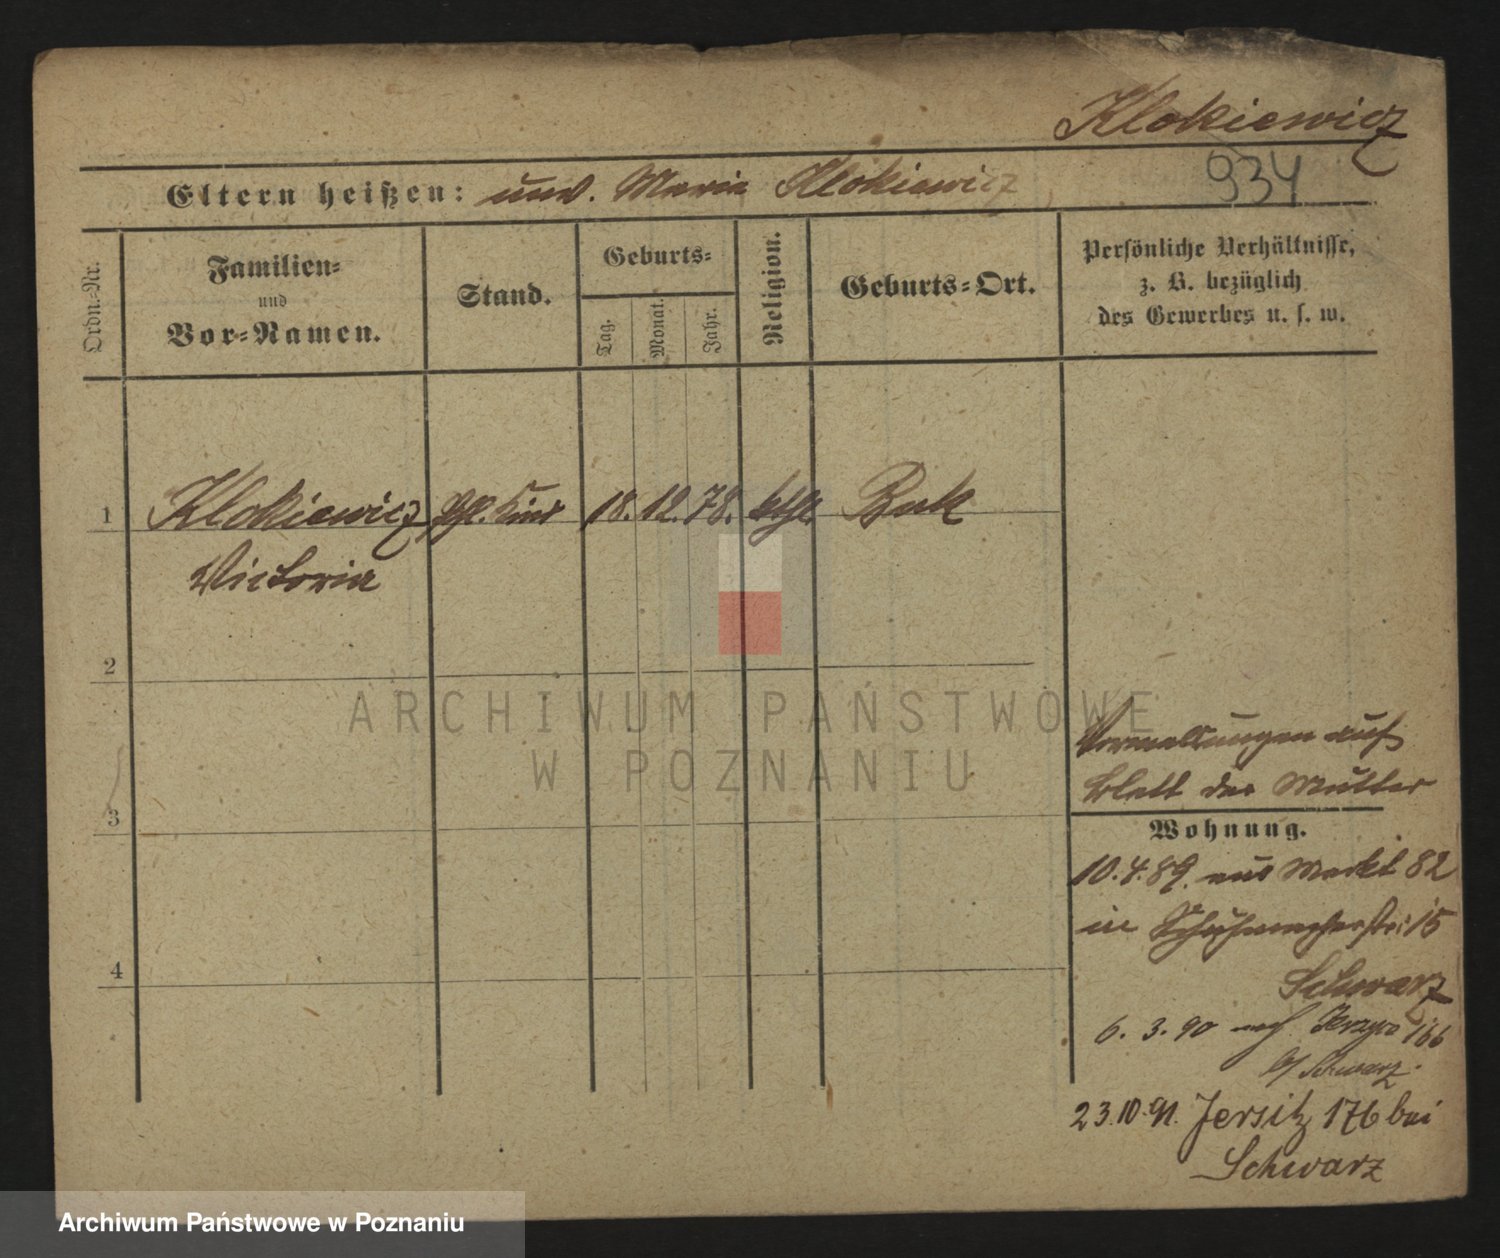 Klokiewicz
934
Eltern heißen: unv. Maria Klokiewicz
Ordn.-Nr.
Familien-
und
Vor-Namen.
Stand.
Geburts-
Tag.
Monat.
Jahr.
Religion.
Geburts-Ort.
Persönliche Verhältnisse,
z. B. bezüglich
des Gewerbes u. s. w.
1 Klokiewicz Pfl. Kind 18. 12. 78. kthl. Buk
Victoria
2
3
4
auf
Blatt der Mutter
Wohnung.
10.4.89. aus Markt 82
in 15
Schwarz
6. 3. 90 nach Jerzyce 166
b/ Schwarz.
23.10.91. Jersitz 176 bei
Schwarz
ARCHIWUM PAŃSTWOWE
W POZNANIU
Archiwum Państwowe w Poznaniu